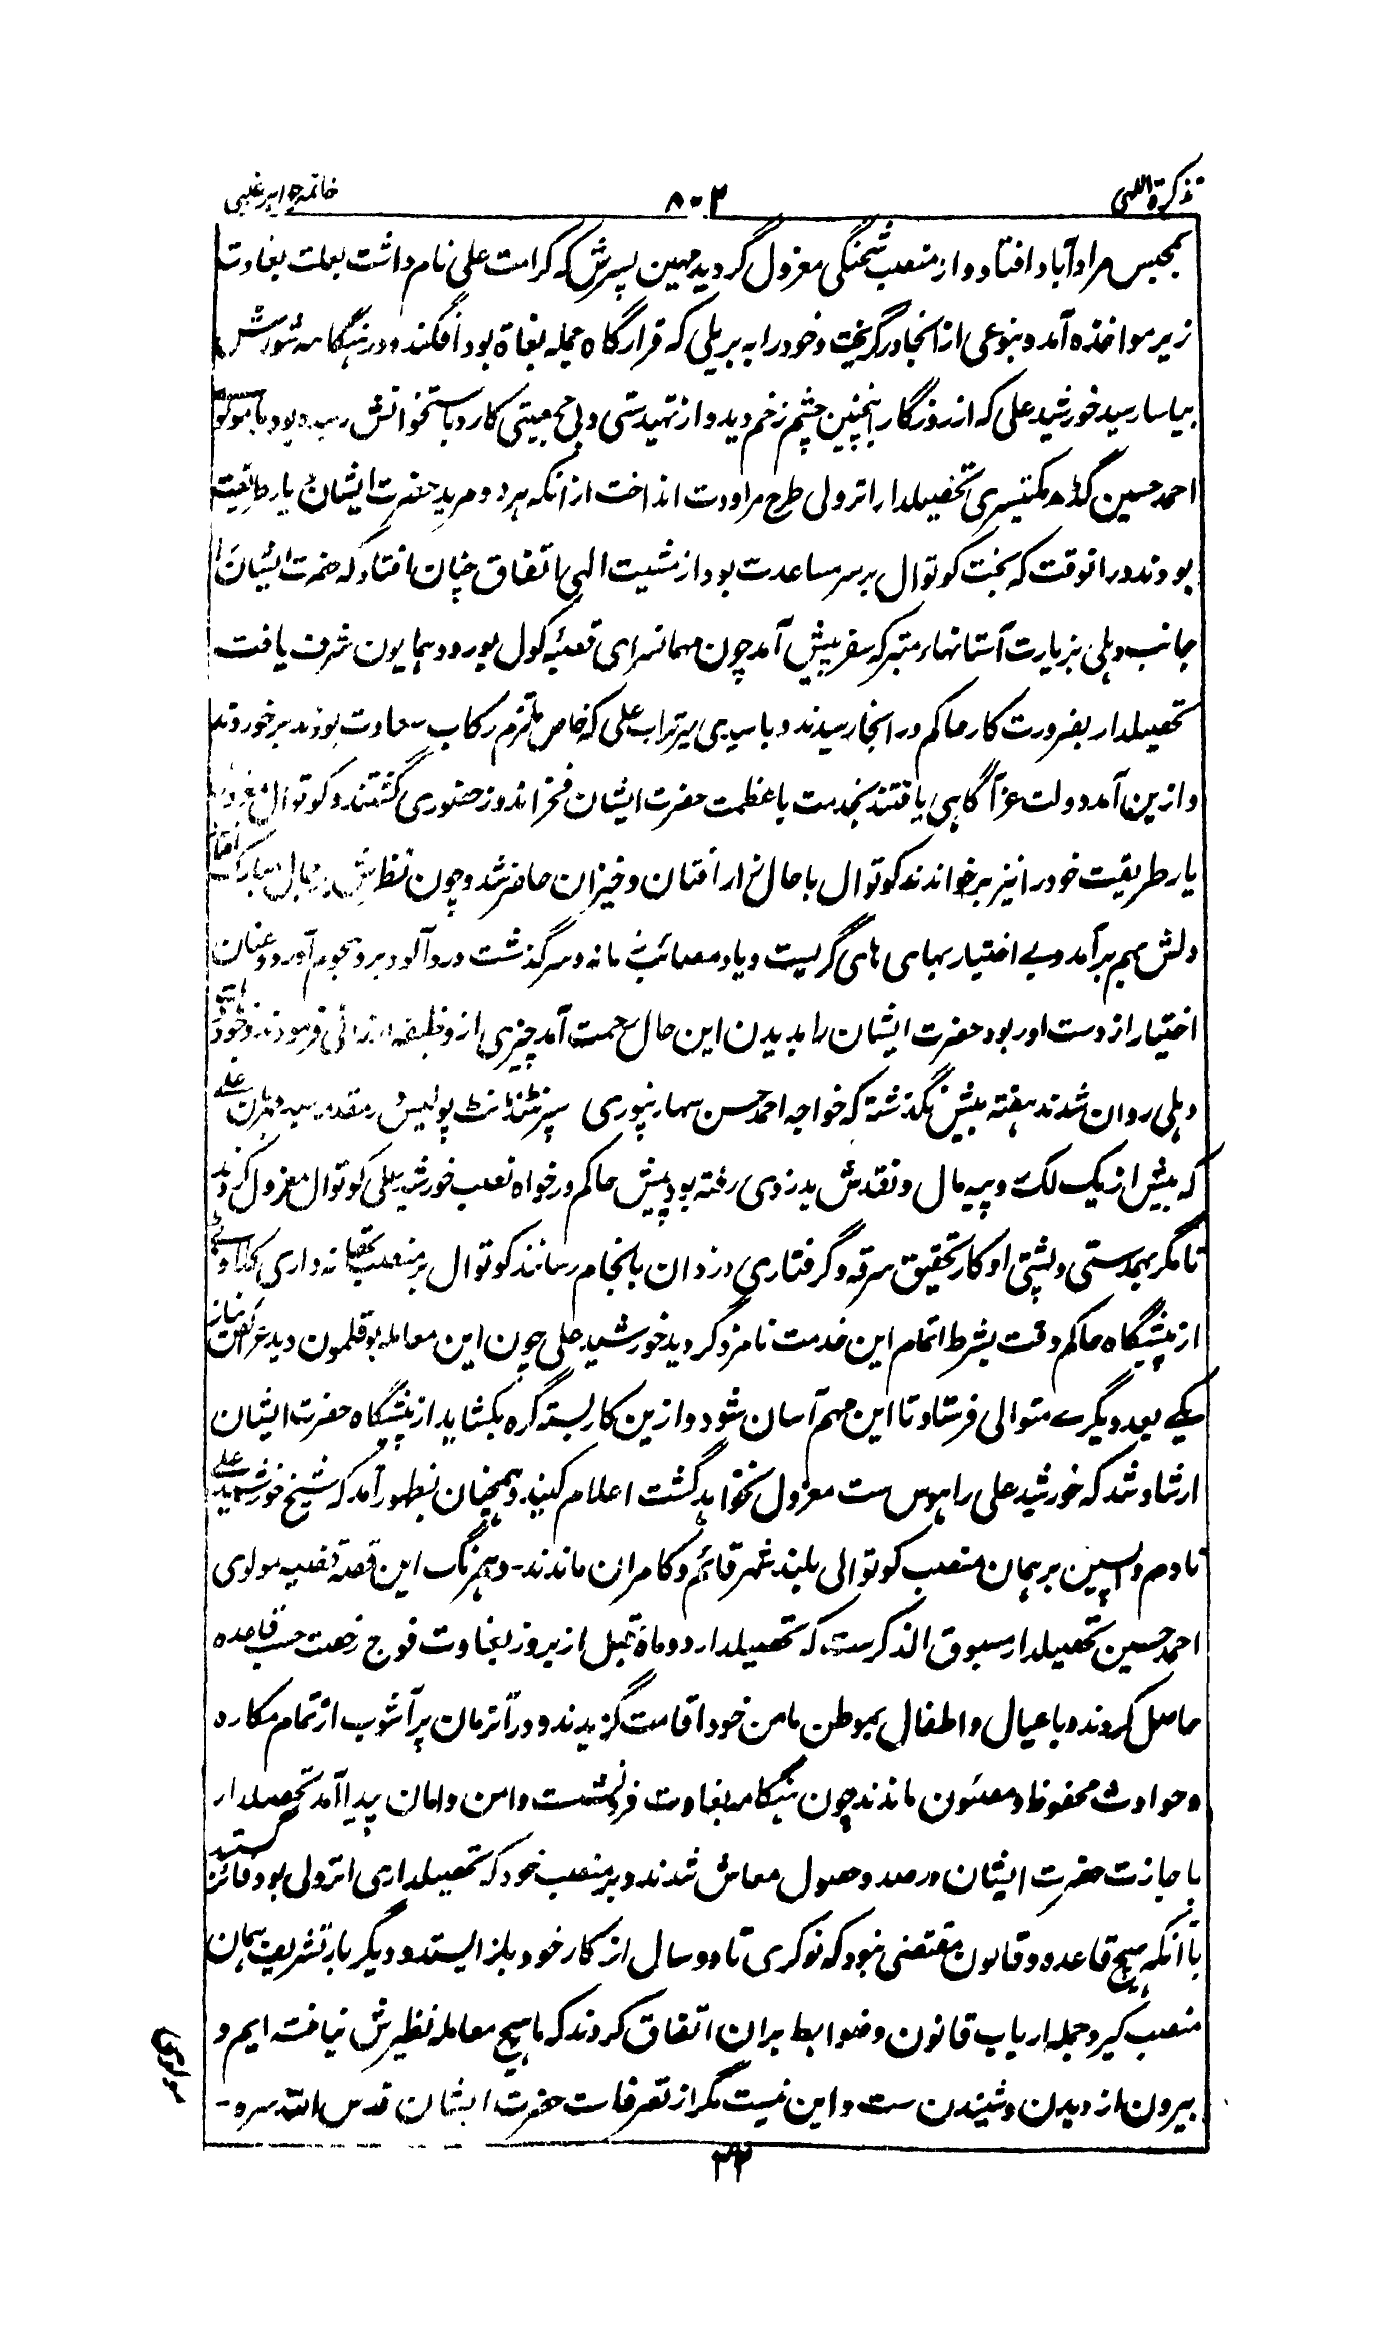 تذکرة اللهی
۸۰۲
خاتمه جواهر غیبی
بمحبس مرادآباد افتاد و از منصب شحنگی معزول گردید مهین پسرش که کرامت علی نام داشت بعلت بغاوت
زیر مواخذه آمد و بنوعی از انجا درگریخت و خود را به بریلی که قرارگاه جمله بغاة بود افگند و در هنگامه شورش
بیاسا رسید خورشید علی که از روزگار اینچنین چشم زخم دید و از تهیدستی و بی جمعیتی کارد باستخوانش رسیده بود با مولوی
احمد حسین گڈھ مکتیسری تحصیلدار اترولی طرح مراودت انداخت از آنکه هر دو مرید حضرت ایشان و یار طریقت
بودند در انوقت که بخت کوتوال بر سر مساعدت بود از مشیت الهی اتفاق چنان افتاد که حضرت ایشان را
جانب دهلی بزیارت آستانهاء متبرکه سفر پیش آمد چون مهمانسرای قصبه کول بورود همایون شرف یافت
تحصیلدار بضرورت کار حاکم در انجا رسیدند و با سیدی میر تراب علی که خاص ملتزم رکاب سعادت بودند برخوردند
و ازین آمد دولت عز آگاهی یافتند بخدمت با عظمت حضرت ایشان فخر اندوز حضوری گشتند و کوتوال
یار طریقت خود را نیز برخواندند کوتوال با حال نزار افتان و خیزان حاضر شد و چون نظرش بر جمال مبارک افتاد
دلش بهم برآمد و بے اختیار بهای های گریست و یاد مصائب زمانه و سرگذشت دردآلود برد هجوم آورد و عنان
اختیار از دست او ربود حضرت ایشان را بدیدن این حال رحمت آمد چیزی از وظیفه ارزانی فرمودند و خود بدولت
دهلی روان شدند هفته بیش نگذشته که خواجه احمد حسن سهارنپوری سپرنٹنڈنٹ پولیس بمقدمه سید مهربان علے
که بیش از یک لک روپیه مال و نقدش بدزدی رفته بود پیش حاکم درخواه نصب خورشید علی کوتوال معزول کردند
تا مگر بهمدستی و پشتی او کار تحقیق سرقه و گرفتاری دزدان بانجام رسانند کوتوال بر منصب تھانه داری گلاوٹھی
از پیشگاه حاکم وقت بشرط اتمام این خدمت نامزد گردید خورشید علی چون این معامله بوقلمون دید عرائض نیاز
یکے بعد دیگرے متوالی فرستاد تا این مهم آسان شود و ازین کار بسته گره بکشاید از پیشگاه حضرت ایشان
ارشاد شد که خورشید علی را بهوس ست معزول نخواهد گشت اعلام کنید و همچنان بظهور آمد که شیخ خورشید علی
تا دم واپسین بر همان منصب کوتوالی بلند شهر قائم و کامران ماندند - و همرنگ این قصه قضیه مولوی
احمد حسین تحصیلدار مسبوق الذکر ست که تحصیلدار دو ماه قبل از بروز بغاوت فوج رخصت حسب قاعده
حاصل کردند و با عیال و اطفال بموطن مامن خود اقامت گزیدند و در آنزمان پرآشوب از تمام مکاره
و حوادث محفوظ و مصئون ماندند چون هنگامه بغاوت فرونشست و امن و امان پیدا آمد تحصیلدار
با جازت حضرت ایشان در صدد حصول معاش شدند و بر منصب خود که تحصیلداری اترولی بود فائز گشتند
با آنکه هیچ قاعده و قانون مقتضی نبود که نوکری تا دو سال از کار خود باز ایستد و دیگر بار تشریف همان
منصب گیرد جمله ارباب قانون و ضوابط بران اتفاق کردند که ما هیچ معامله نظیرش نیافته ایم و
بیرون از دیدن و شنیدن ست و این نیست مگر از تصرفات حضرت ایشان قدس الله سره -
مولوی
۲۲